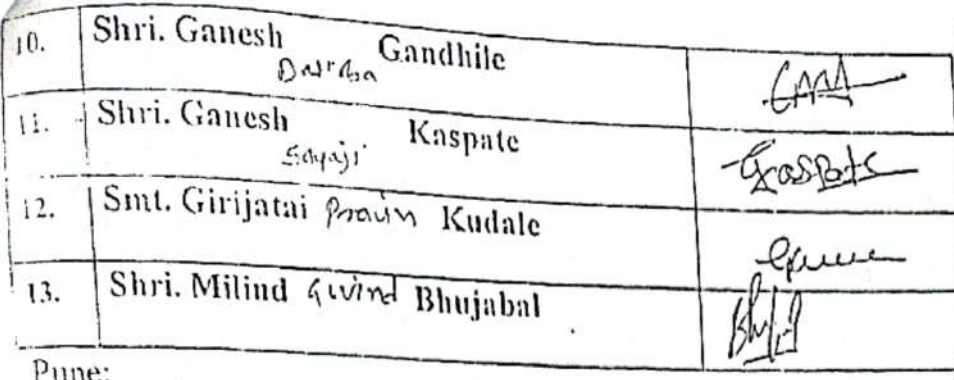 10. Shri. Ganesh Gandhile
11. Shri. Ganesh Sayaji Kaspate Kaspate
12. Smt. Girijatai Pravin Kudale
13. Shri. Milind Govind Bhujabal
Pune: